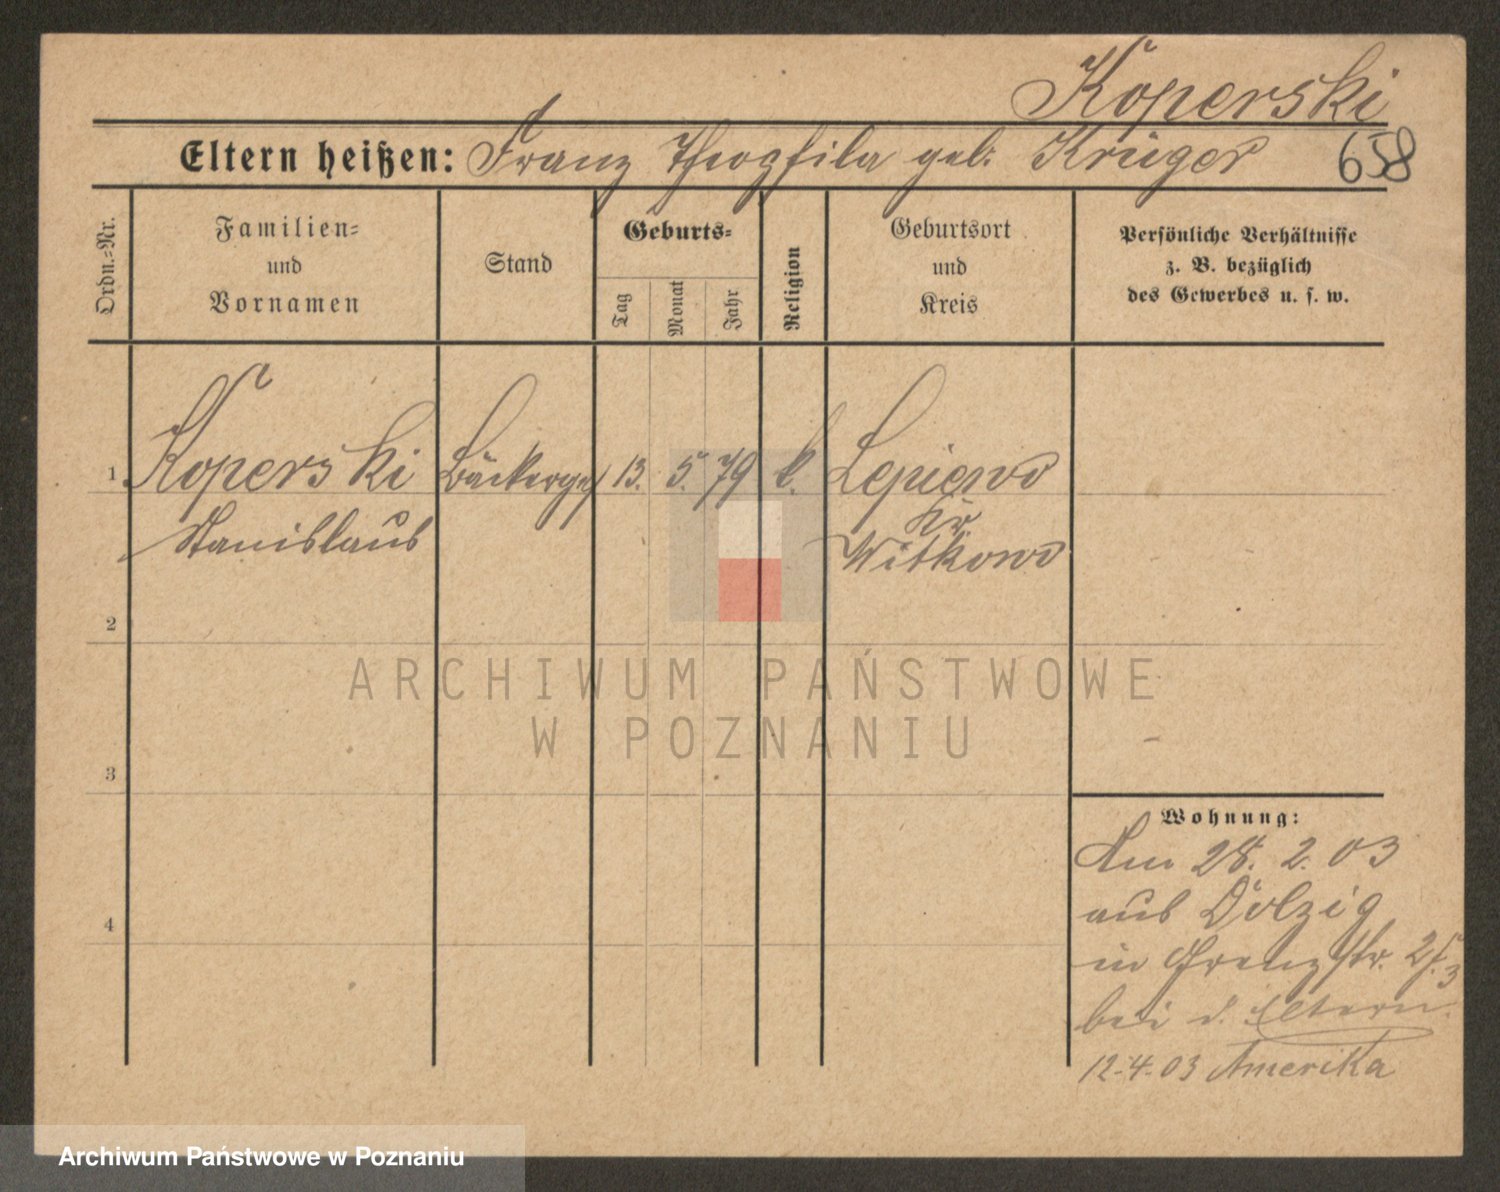 Koperski
Eltern heißen: Franz Theophila geb. Krüger 658
Ordn.=Nr.
Familien=
und
Vornamen
Stand
Geburts=
Tag
Monat
Jahr
Religion
Geburtsort
und
Kreis
Persönliche Verhältnisse
z. B. bezüglich
des Gewerbes u. s. w.
1 Koperski Bäckerges 13. 5. 79 k. Lepiewo
Stanislaus Kr
Witkowo
2
3
4
Wohnung:
Am 28. 2. 03
aus Dolzig
in Grenzstr. 25. 3
bei d. Eltern.
12.4.03 Amerika
ARCHIWUM PAŃSTWOWE
W POZNANIU
Archiwum Państwowe w Poznaniu